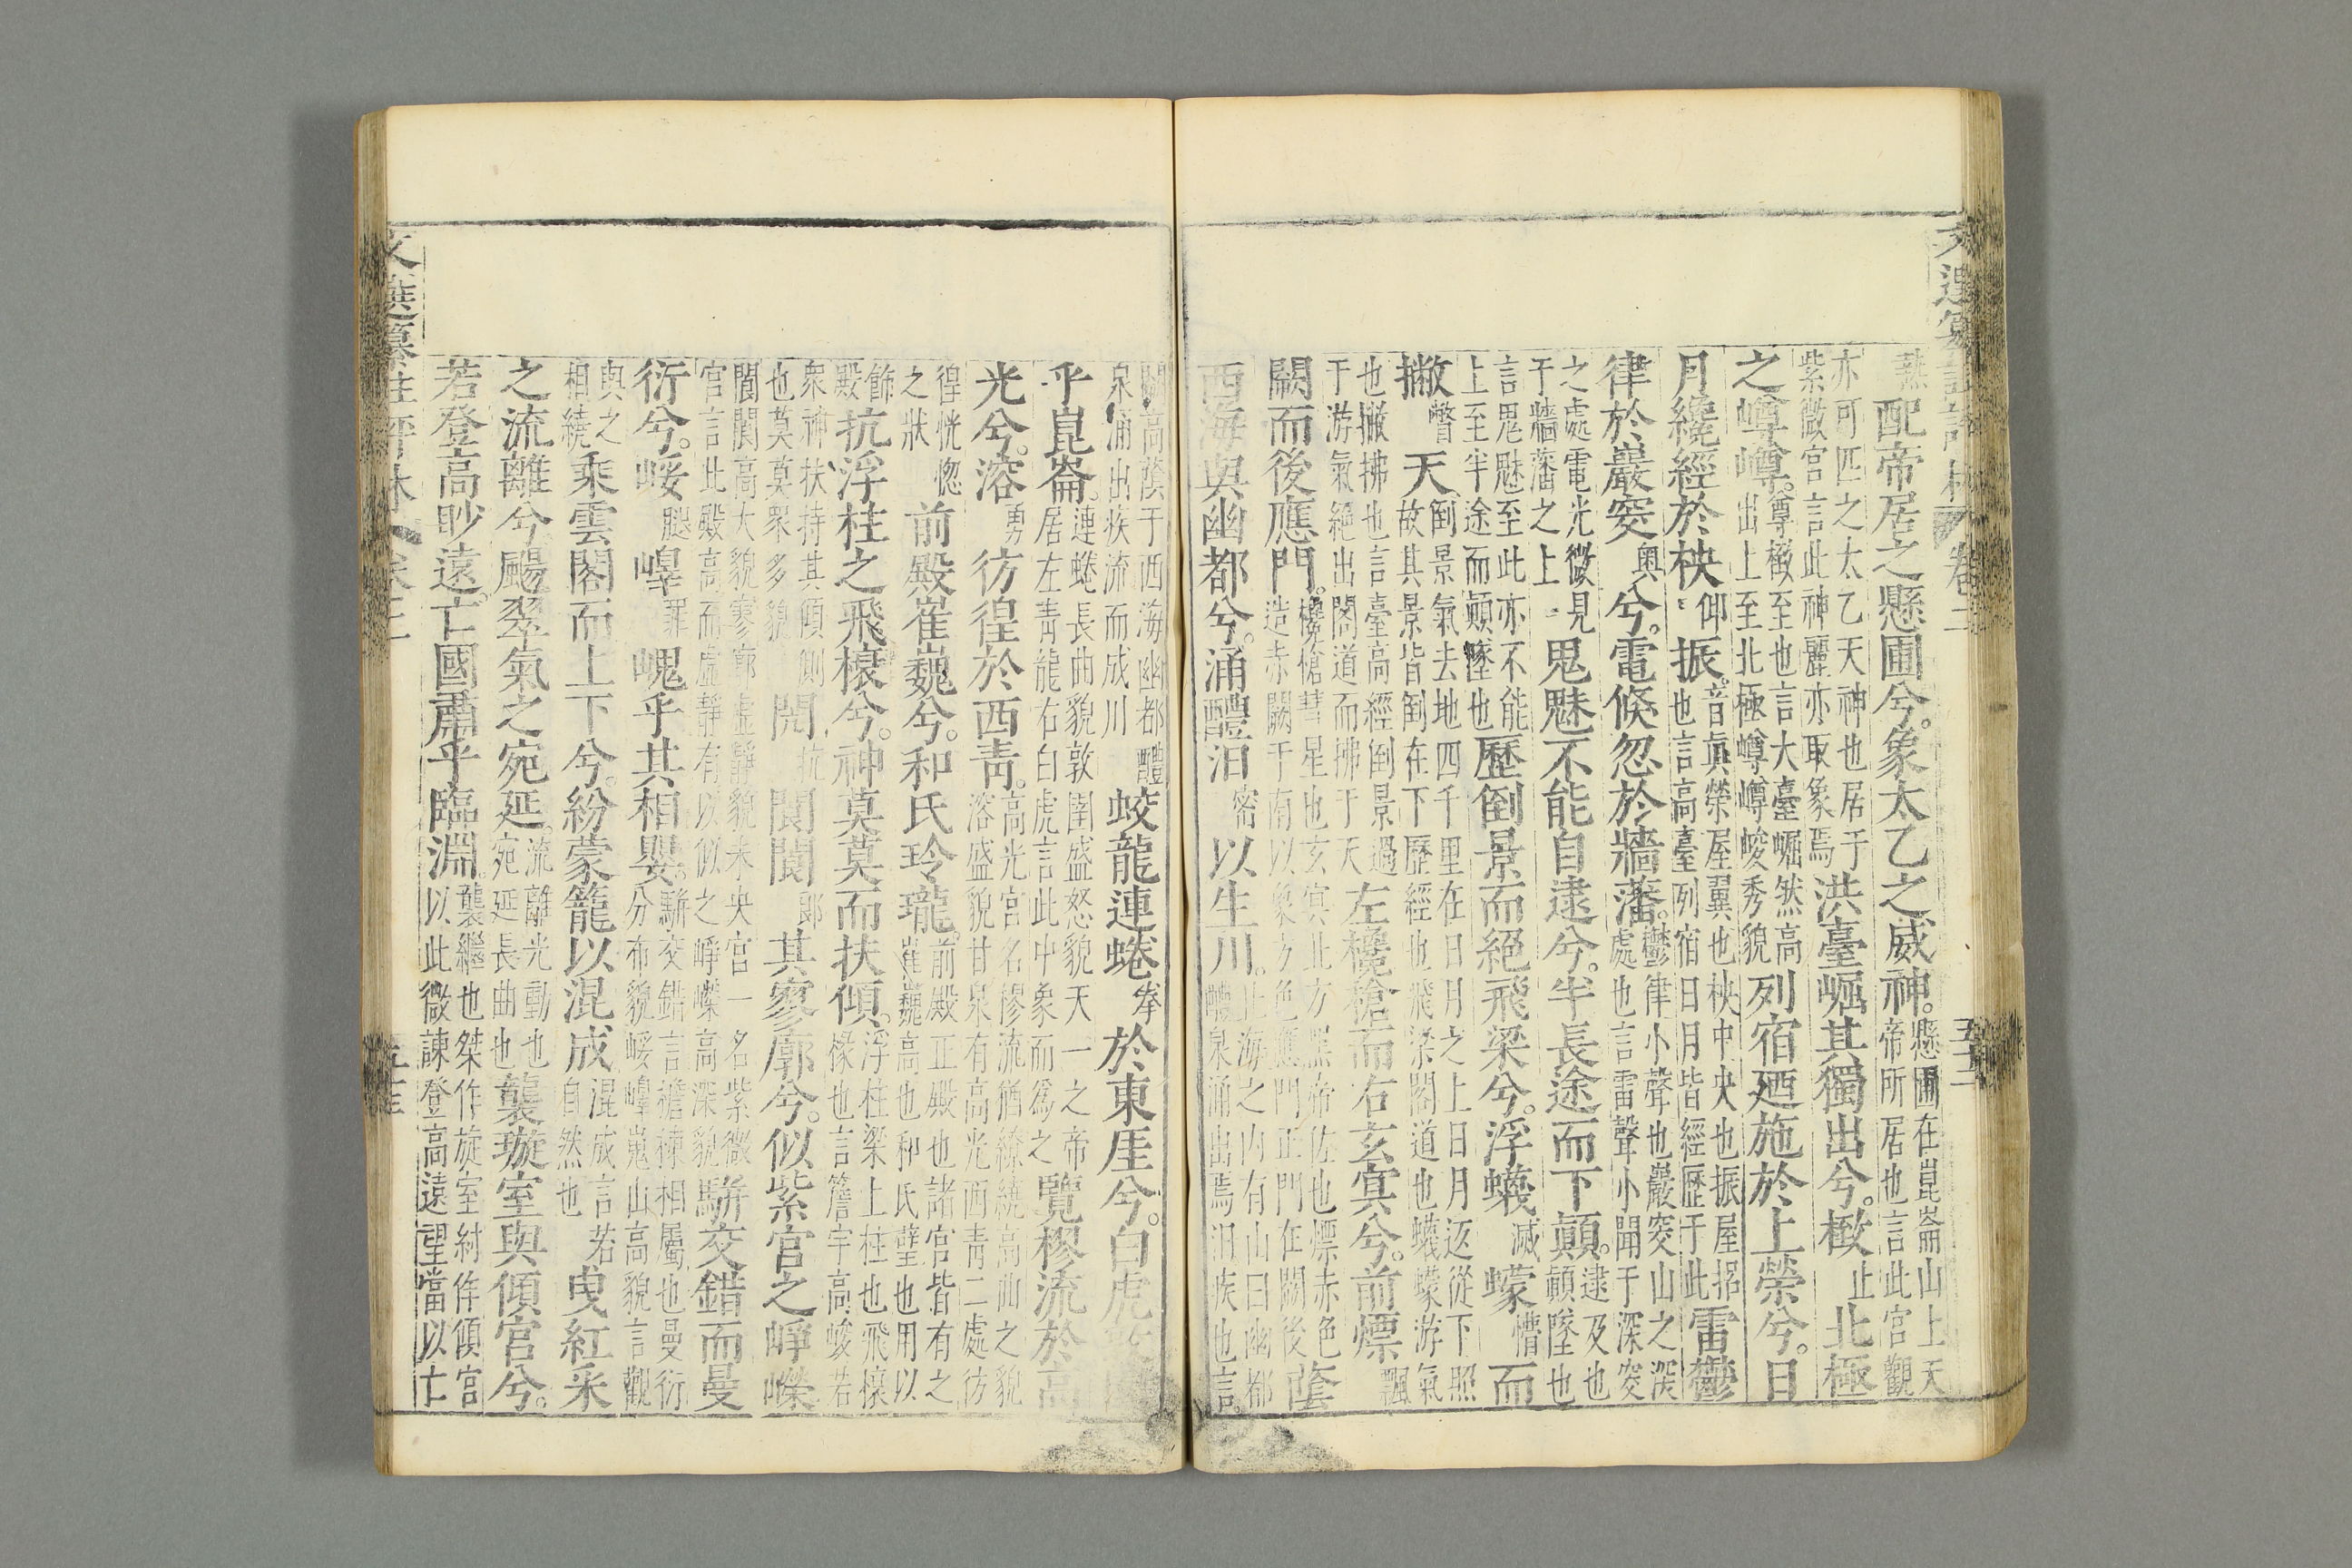 文選纂註評林 卷二 五十二
燕配帝居之懸圃兮。象太乙之威神。懸圃在崑崙山上天帝所居也言此宮觀
亦可匹之太乙天神也居于紫微宮言此神麗亦取象焉洪臺崛其獨出兮。㨖止北極
之嶟嶟。嶟㨖至也言大臺崛然高出上至北極嶟嶟峻秀貌列宿廼施於上榮兮。日
月纔經於柍仰振。音眞榮屋翼也柍中央也振屋招也言高臺列宿日月皆經歷于此雷鬱
律於巖窔奧兮。電倏忽於牆藩。鬱律小聲也巖窔山之深處也言雷聲小聞于深窔
之處電光微見于牆藩之上鬼魅不能自逮兮。半長途而下顛。逮及也顛墜也
言鬼魅至此亦不能上至半途而顛墜也歷倒景而絕飛梁兮。浮蠛滅蠓懵而
撇瞥天。倒景氣去地四千里在日月之上日月返從下照故其景皆倒在下歷經也飛梁閣道也蠛蠓游氣
也撇拂也言臺高經倒景過于游氣絕出閣道而拂于天左欃槍而右玄冥兮。前熛飄
闕而後應門。欃槍彗星也玄冥北方黑帝佐也熛赤色造赤闕于南以象方色應門正門在闕後䕃
西海與幽都兮。涌醴汨密以生川。北海之內有山曰幽都醴泉涌出焉汨疾也言
闕高䕃于西海幽都醴泉涌出疾流而成川蛟龍連蜷拳於東厓兮。白虎
乎崑崙。連蜷長曲貌敦圉盛怒貌天一之帝居左青龍右白虎言此中象而爲之覽樛流於高
光兮。溶勇彷徨於西青。高光宮名樛流猶繚繞高曲之貌溶盛貌甘泉有高光西青二處彷
徨恍惚之狀前殿崔巍兮。和氏玲瓏。前殿正殿也諸宮皆有之崔巍高也和氏璧也用以
飾殿抗浮柱之飛榱兮。神莫莫而扶傾。浮柱梁上柱也飛榱椽也言簷宇高峻若
衆神扶持其傾側也莫莫衆多貌閌抗閬閬郎其寥廓兮。似紫宮之崢嶸
閬閬高大貌寥廓虛靜貌未央宮一名紫微宮言此殿高而虛靜有以似之崢嶸高深貌駢交錯而曼
衍兮。㟎腿㠑罪嵬乎其相嬰。駢交錯言簷棟相屬也曼衍分布貌㟎㠑嵬山高貌言觀
與之相繞乘雲閣而上下兮。紛蒙籠以混成。混成言若自然也曳紅采
之流離兮。颺翠氣之宛延。流離光動也宛延長曲也襲璇室與傾宮兮。
若登高眇遠。亡國肅乎臨淵。襲繼也桀作旋室紂作傾宮以此微諫登高遠望當以亡
文選纂註評林 卷二